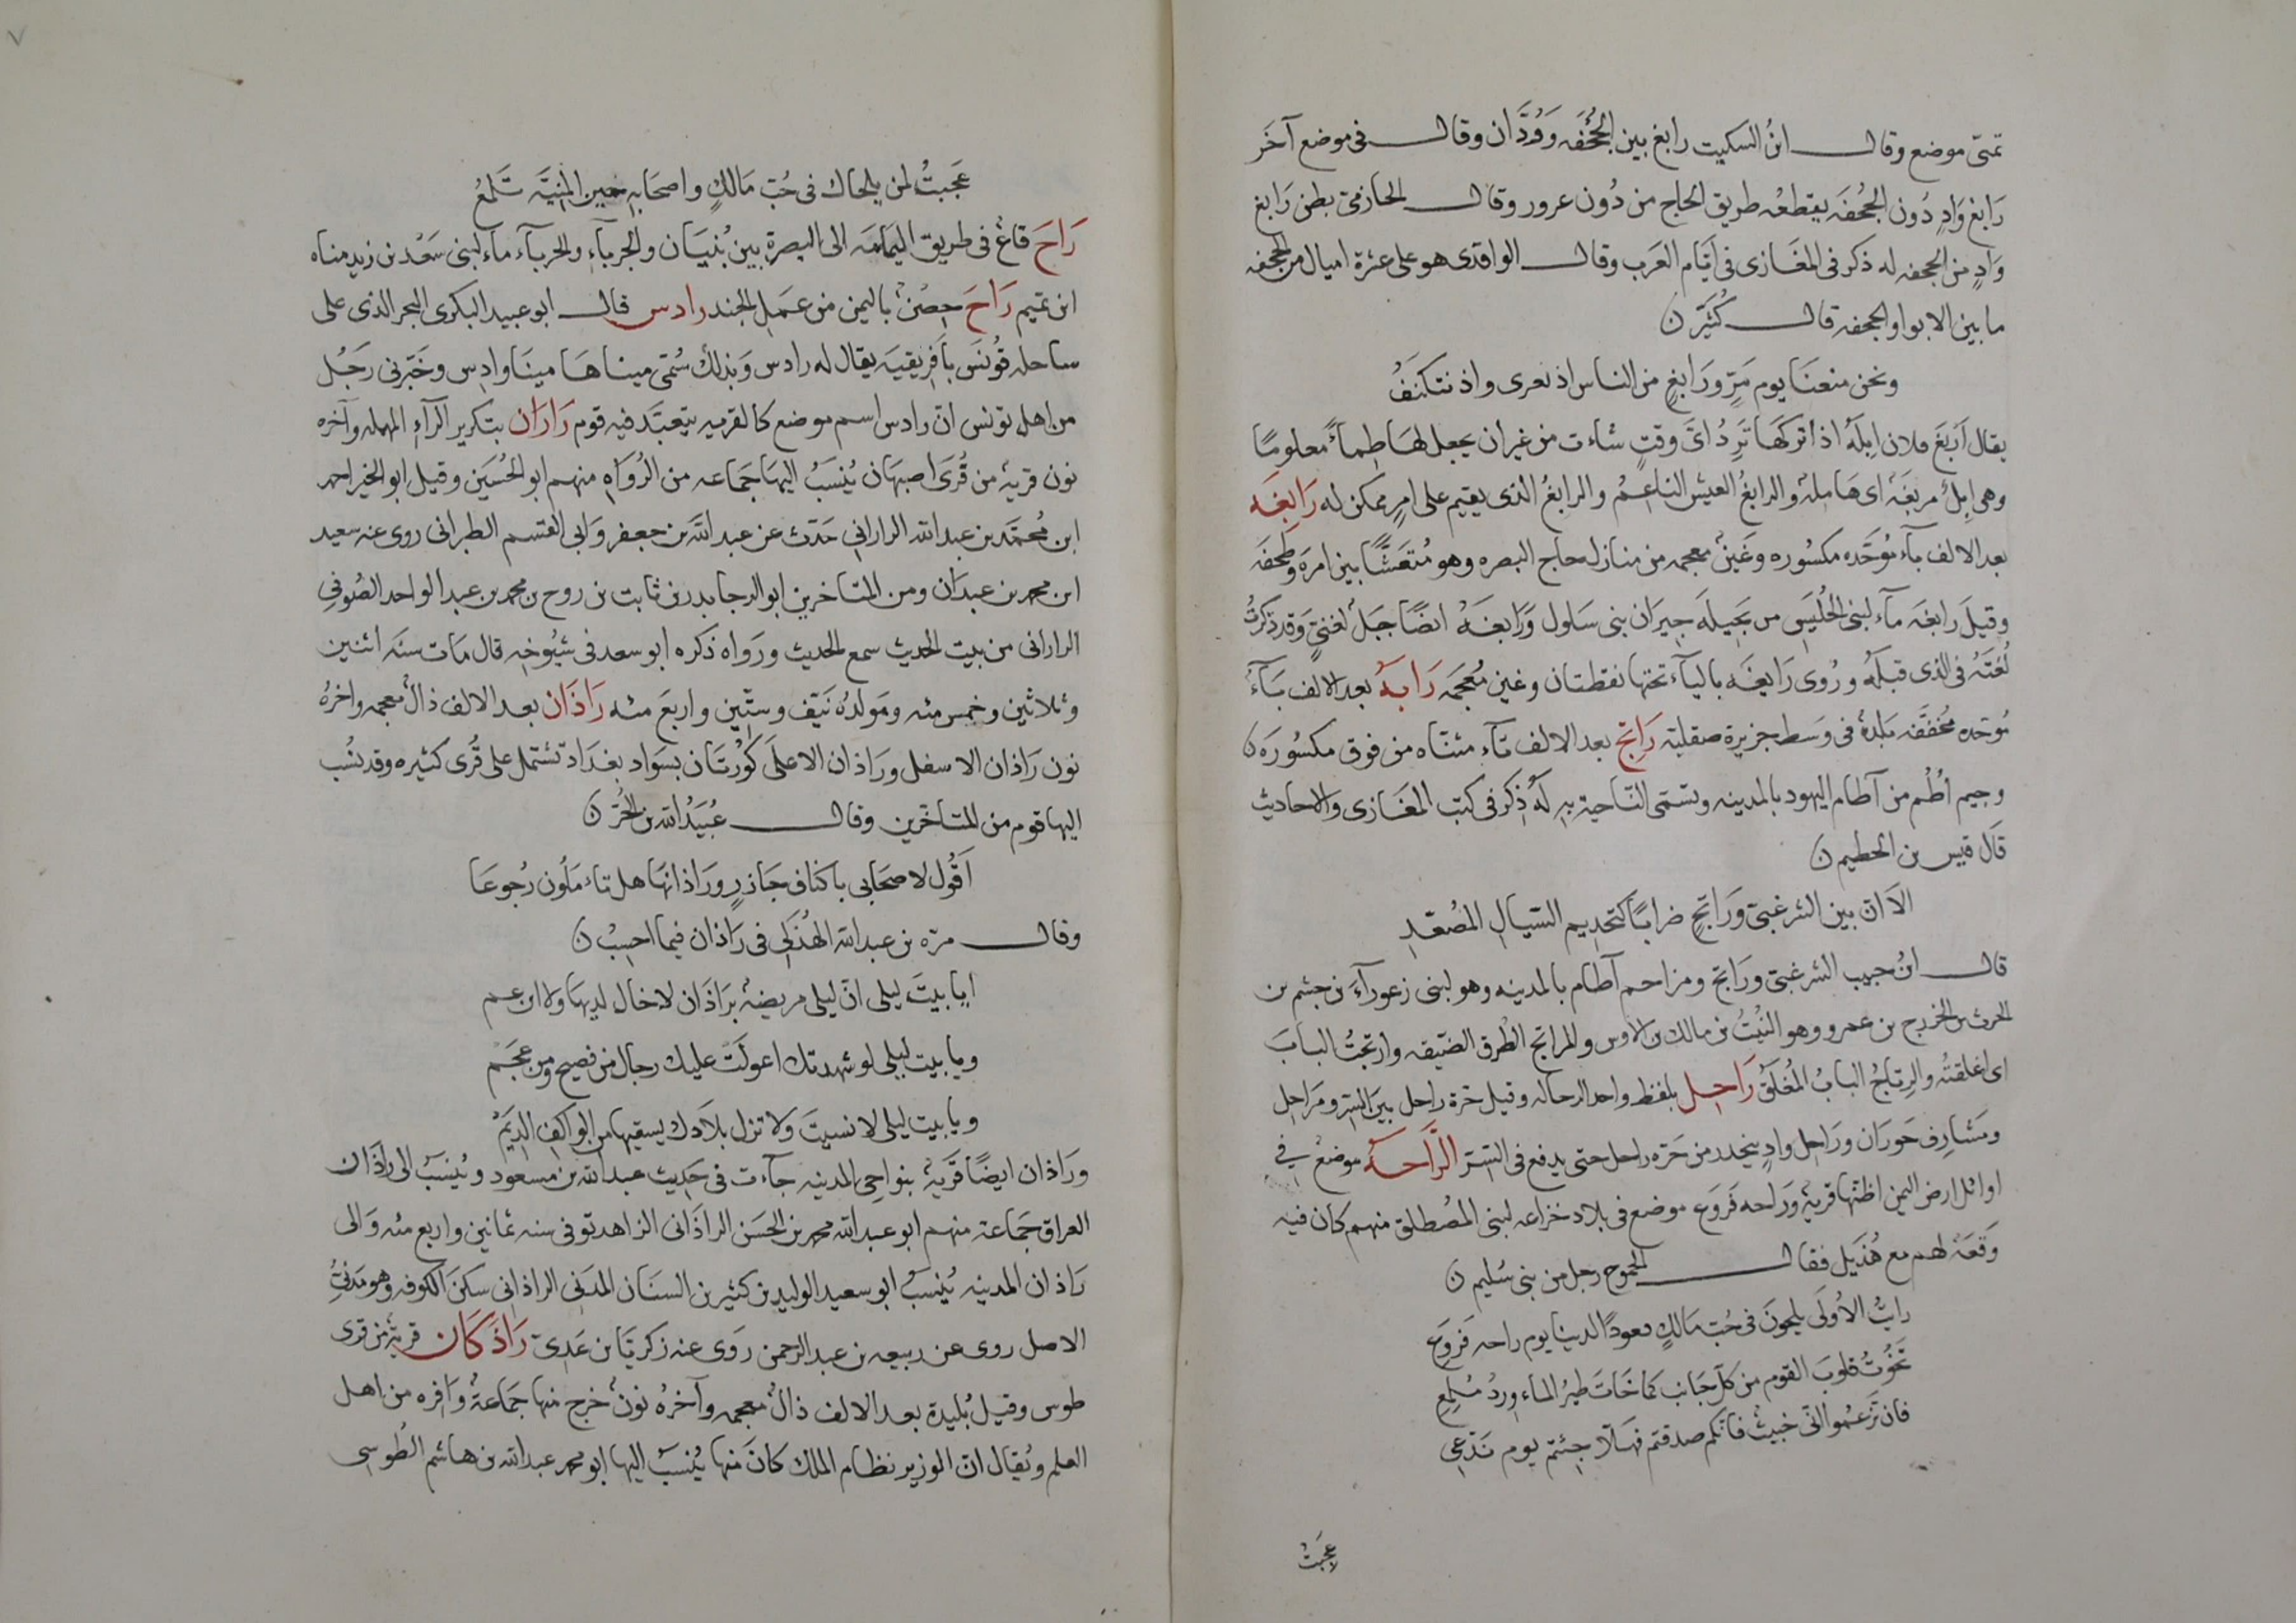 تمتى موضع وقال ابنُ السكيت رابغ بين الجُحْفَه وَوُدَّان وقال فى موضع آخَر
رَابغ وَادٍ دُون الجُحفَه يقطعُه طريق الحاج من دُون عزور وقال الحازمى بطن رَابغ
وَادٍ من الجحفه له ذكر فى المغَازى فى اَيَّام العَرب وقال الواقدى هو على عشرة اميال من الجحفه
ما بين الابوا والجحفه قال كُثَيّر ن
ونحن منعنَا يوم مَرٍّ ورَابغٍ من الناس اذ نعرى واذ نتكنَفُ
يقال اَربَغ فلان اِبلَهُ اذا تركَهَا تَرِدُ اىّ وقتٍ شاءت من غيران يجعل لهَا ظمأً معلومًا
وهى اِبلٌ مربغَه اى هَامِلة والرابغُ العيش الناعِمُ والرابغُ الذى يقيم على امرٍ ممكن له رَابِغَه
بعد الالف بآء مُوَحَّده مكسُوره وغَينٌ معجمه من منازل حاج البصره وهو مُتعَشًّا بين امرَه وطخفَه
وقيلَ رابغَه مآء لبنى الحُلَيَس من بَجَيلَه جِيرَان بنى سَلول وَرَابغَةُ ايضًا جَبَلٌ لغنىّ وَقد ذكرتُ
لُغتَهُ فى الذى قبلَهُ ورُوى رَايغَه باليآء تحتها نقطتان وغين مُعجَمَه رَابةُ بعد الالف بَآءٌ
مُوحّده مخفّفَه بَلدةٌ فى وَسط جزيرة صقلية رَاتِجٌ بعد الالف تآء مثنّاه من فوق مكسُورَه ن
وجيم اُطُم من آطام اليهود بالمدينه وتسمّى النّاحية بِهِ لَهُ ذِكر فى كتب المغَازى والاحاديث
قَال قيس بن الحطيم ن
الَا ان بين الشرغبىّ ورَاتِجٍ ضرابًا كتجذيم السّيالِ المُصَعّدِ
قال ابنُ حبيب الشرغبىّ ورَاتج ومزاحم آطام بالمدينه وهو لبنى زعورآءَ بن جشم بن
الحرث بن الخزرج بن عمرو وهو النبْتُ بن مالك بن الاوس والمراتج الطُرق الضيّقه وارتجتُ البابَ
اى اغلقتُه والرِتاجُ البابُ المُغلَقُ رَاحِل بلفظ واحد الرحاله وقيل حرة راحل بين السِرّ ومَراحِل
ومشَارِف حَورَان ورَاحِل وادٍ ينحدر من حَرّه راحل حتى يدفع فى السّر الرَّاحَةُ موضعٌ فى
اوائل ارض اليمن اظنّها قرية ورَاحه فَروَع موضع فى بلاد خزاعه لبنى المُصطلق منهم كان فيه
وَقعَة لهم مع هُذَيل فقال الجموح رجل من بنى سُليم ن
رايتُ الاُولَى يلحَونَ فى حُبّ مَالكٍ قعودًا لدينا يوم راحه فَروَعِ
تخُوتُ قلوبَ القوم من كلّ جَانب كما خَاتَ طيرُ المَاء وِردٌ مُلمِعِ
فان تَزعمُوا انّى خبيثٌ فانكم صدقتم فهَلّا جِئتم يوم نَدَّعى
عجبَتُ
عَجَبتُ لمن يلحاك فى حُبّ مَالكٍ واصحَابِهِ حين المنيَّه تَلمعُ
رَاحَ قاعٌ فى طريق اليمامَه الى البصرة بين بُنبَيان والجربآءِ والجربآء مآء لبنى سَعْد بن زيد مناه
ابن تميم رَاحَ حِصْنٌ باليمن من عمَلِ الجند رادس قال ابو عبيد البكرى البحر الذى على
ساحله تونَس بآفريقيَه يقال له رادس وَبذلك سُمّى ميناها مينَا وادِس وخَبّرنى رَجُل
من اهل تونس انّ رادس اسم موضع كالقريه يتعبَّد فيه قوم رَارَان بتكرير الرّآءِ المهمله وآخره
نون قريةٌ من قُرَى اصبهَان يُنسَبُ اليها جَمَاعه من الرُوَاه منهم ابو الحُسَين وقيل ابو الخير احمد
ابن مُحمَّد بن عبد الله الرارانى حَدّث عن عبد الله بن جعفر وَابى القسم الطبرانى روى عنه سعيد
ابن محمد بن عبدَان ومن المتاخرين ابو الرجا بدر بن ثابت بن روح بن محمد بن عبد الواحد الصُوفى
الرارانى من بيت الحديث سمع الحديث ورَواه ذكره ابو سعد فى شيُوخِهِ قال مَات سنَه اثنين
وثلاثين وخمس مئه ومَولدُهُ نيّف وستّين واربع مئه رَاذَان بعد الالف ذالٌ معجمه واخرهُ
نون رَاذان الاسفل ورَاذان الاعلَى كُورتَان بسَواد بغدَاد تشتمل على قُرى كثيره وقد نسُب
اليها قوم من المتاخّرين وقال عُبَيدُ الله بن الحُرّ ن
اَقُول لاصحَابى باكناف جَازرٍ ورَاذانهَا هل تاءمَلُون رُجوعَا
وقال مرّه بن عبد الله الهُذَلى فى رَاذان فيما احسِبُ ن
ايا بيتَ ليلى انّ ليلى مريضةٌ برَاذَان لا خال لديهَا ولا ابن عم
ويا بيت ليلى لو شهدتك اعولَت عليك رجال من فصيح ومن عجَم
ويا بيت ليلى لا نسيتَ ولا تزل بلادك يسقيها من الواكِفِ الدِيَمُ
ورَاذان ايضًا قَريةٌ بنواحى المدينه جآءت فى حَدِيث عبد الله بن مسعود ويُنسَبُ الى راذان
العراق جَمَاعة منهم ابو عبد الله محمد بن الحَسَن الراذَانى الزاهد توفى سنه ثمانين واربع مئه وَالى
رَاذان المدينه يُنسَبُ ابو سعيد الوليد بن كثير بن السنَان المدَنى الراذانى سكنَ الكوفه وهو مَدنىُّ
الاصل روى عن ربيعه بن عبد الرحمن رَوى عنه زكريّا بن عَدِىّ رَاذَكَان قريةٌ من قرى
طوس وقيل بُليدة بعد الالف ذالٌ معجمه وآخرُهُ نونٌ خرج منها جَمَاعةٌ وَافره من اهل
العلم ويُقال ان الوزير نظام الملك كانَ منها يُنسَبُ اليها ابو محمد عبد الله بن هاشم الطُوسى